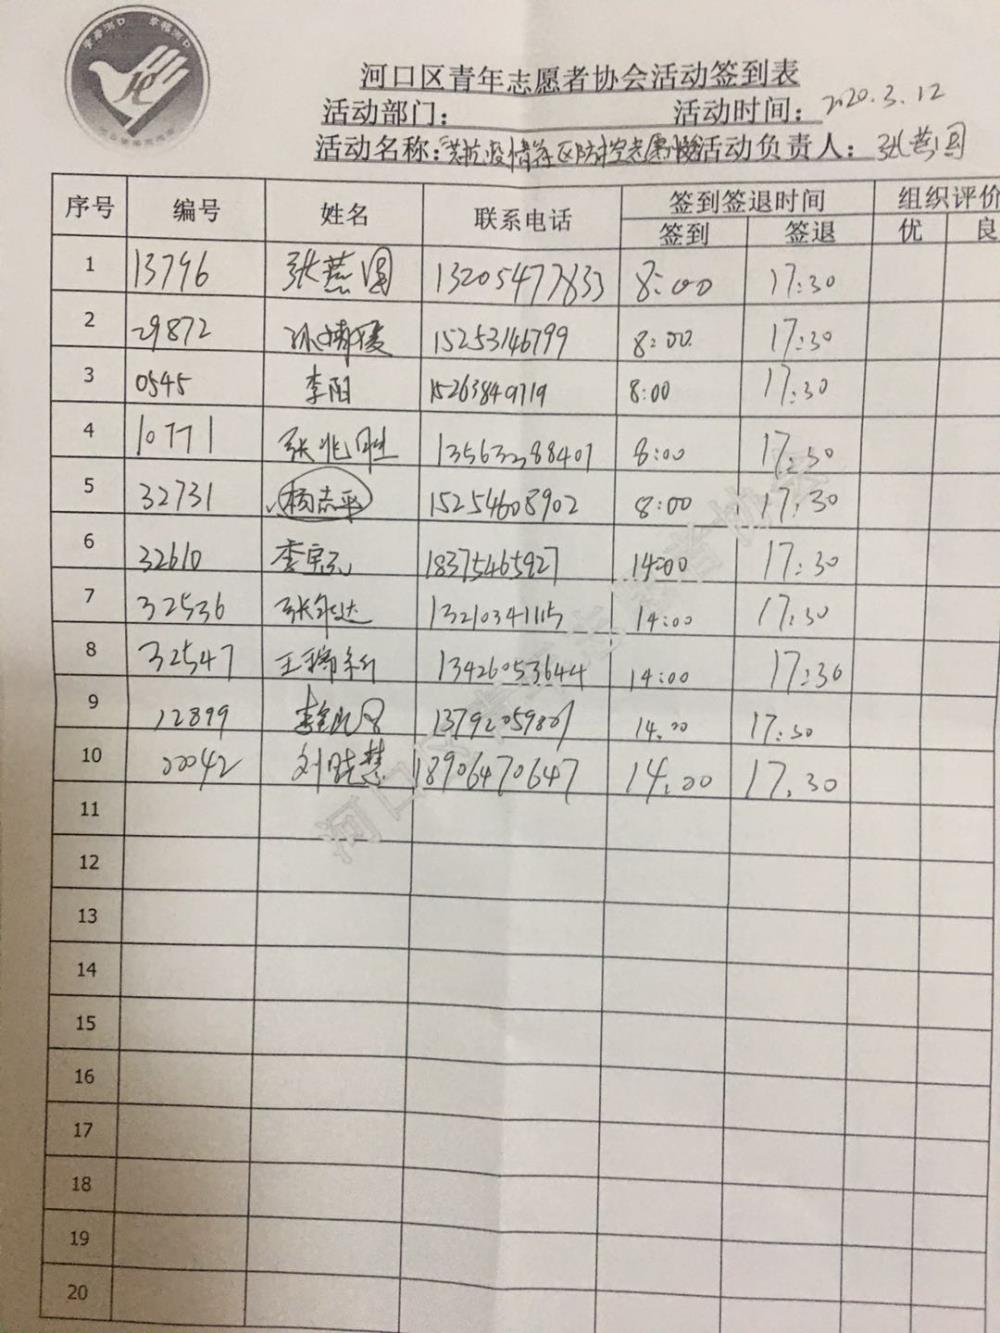 河口区青年志愿者协会活动签到表
活动部门： 活动时间：2020.3.12
活动名称： 疫情 区防控志愿 活动负责人：张燕圆
序号 编号 姓名 联系电话 签到签退时间 组织评价
签到 签退 优 良
1 13796 张燕圆 13205477833 8:00 17:30
2 29872 15253146799 8:00 17:30
3 0545 李阳 15263849719 8:00 17:30
4 10771 张兆胜 13563288407 8:00 17:30
5 32731 杨志平 15254608902 8:00 17:30
6 32610 18375465927 14:00 17:30
7 32536 张 达 13210341115 14:00 17:30
8 32547 王瑞 13426053644 14:00 17:30
9 12899 李 13792059801 14:00 17:30
10 20042 刘晓慧 18906470647 14:00 17:30
11
12
13
14
15
16
17
18
19
20
河口区青年志愿者协会